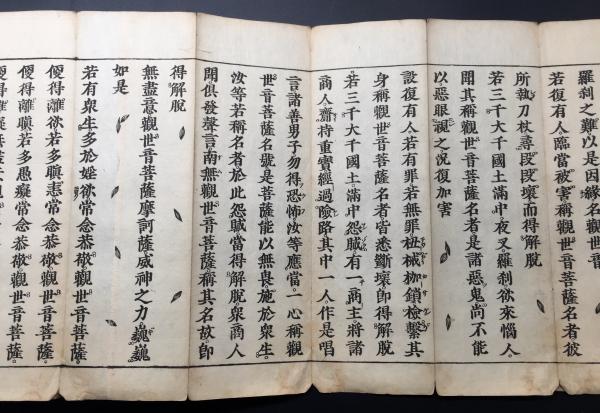 羅刹之難以是因緣名觀世音
若復有人臨當被害稱觀世音菩薩名者彼
所執刀杖尋段段壞而得解脫
若三千大千國土滿中夜叉羅刹欲來惱人
聞其稱觀世音菩薩名者是諸惡鬼尚不能
以惡眼視之況復加害
設復有人若有罪若無罪杻械枷鎖檢繫其
身稱觀世音菩薩名者皆悉斷壞即得解脫
若三千大千國土滿中怨賊有一商主將諸
商人齎持重寶經過險路其中一人作是唱
言諸善男子勿得恐怖汝等應當一心稱觀
世音菩薩名號是菩薩能以無畏施於眾生
汝等若稱名者於此怨賊當得解脫眾商人
聞俱發聲言南無觀世音菩薩稱其名故即
得解脫
無盡意觀世音菩薩摩訶薩威神之力巍巍
如是
若有眾生多於婬欲常念恭敬觀世音菩薩
便得離欲若多瞋恚常念恭敬觀世音菩薩
便得離瞋若多愚癡常念恭敬觀世音菩薩
便得離癡無盡意觀